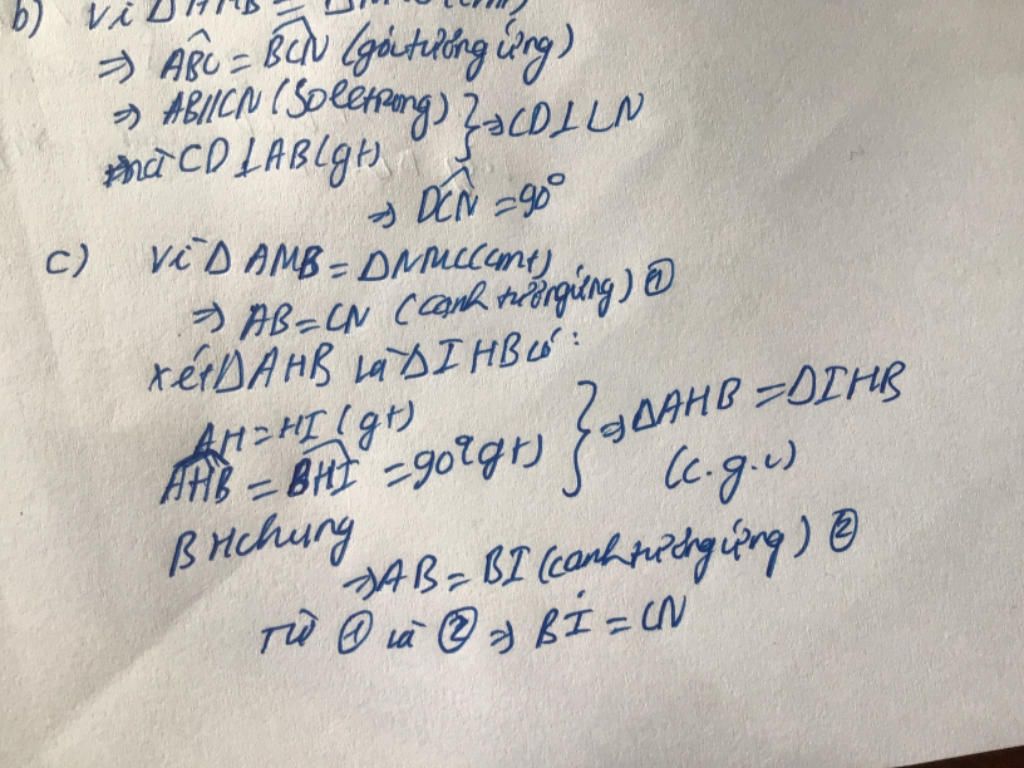 b) Vì ΔAMB = ΔNMC (cmt)
⇒ ABC = BCN (góc tương ứng)
⇒ AB//CN (So le trong)
mà CD⊥AB (gt) } ⇒ CD⊥CN
⇒ DCN = 90°
c) Vì ΔAMB = ΔNMC (cmt)
⇒ AB = CN (cạnh tương ứng) ①
xét ΔAHB và ΔIHB có:
AH = HI (gt)
AHB = BHI = 90° (gt) } ⇒ ΔAHB = ΔIHB
(c.g.c)
BH chung
⇒ AB = BI (cạnh tương ứng) ②
Từ ① và ② ⇒ BI = CN